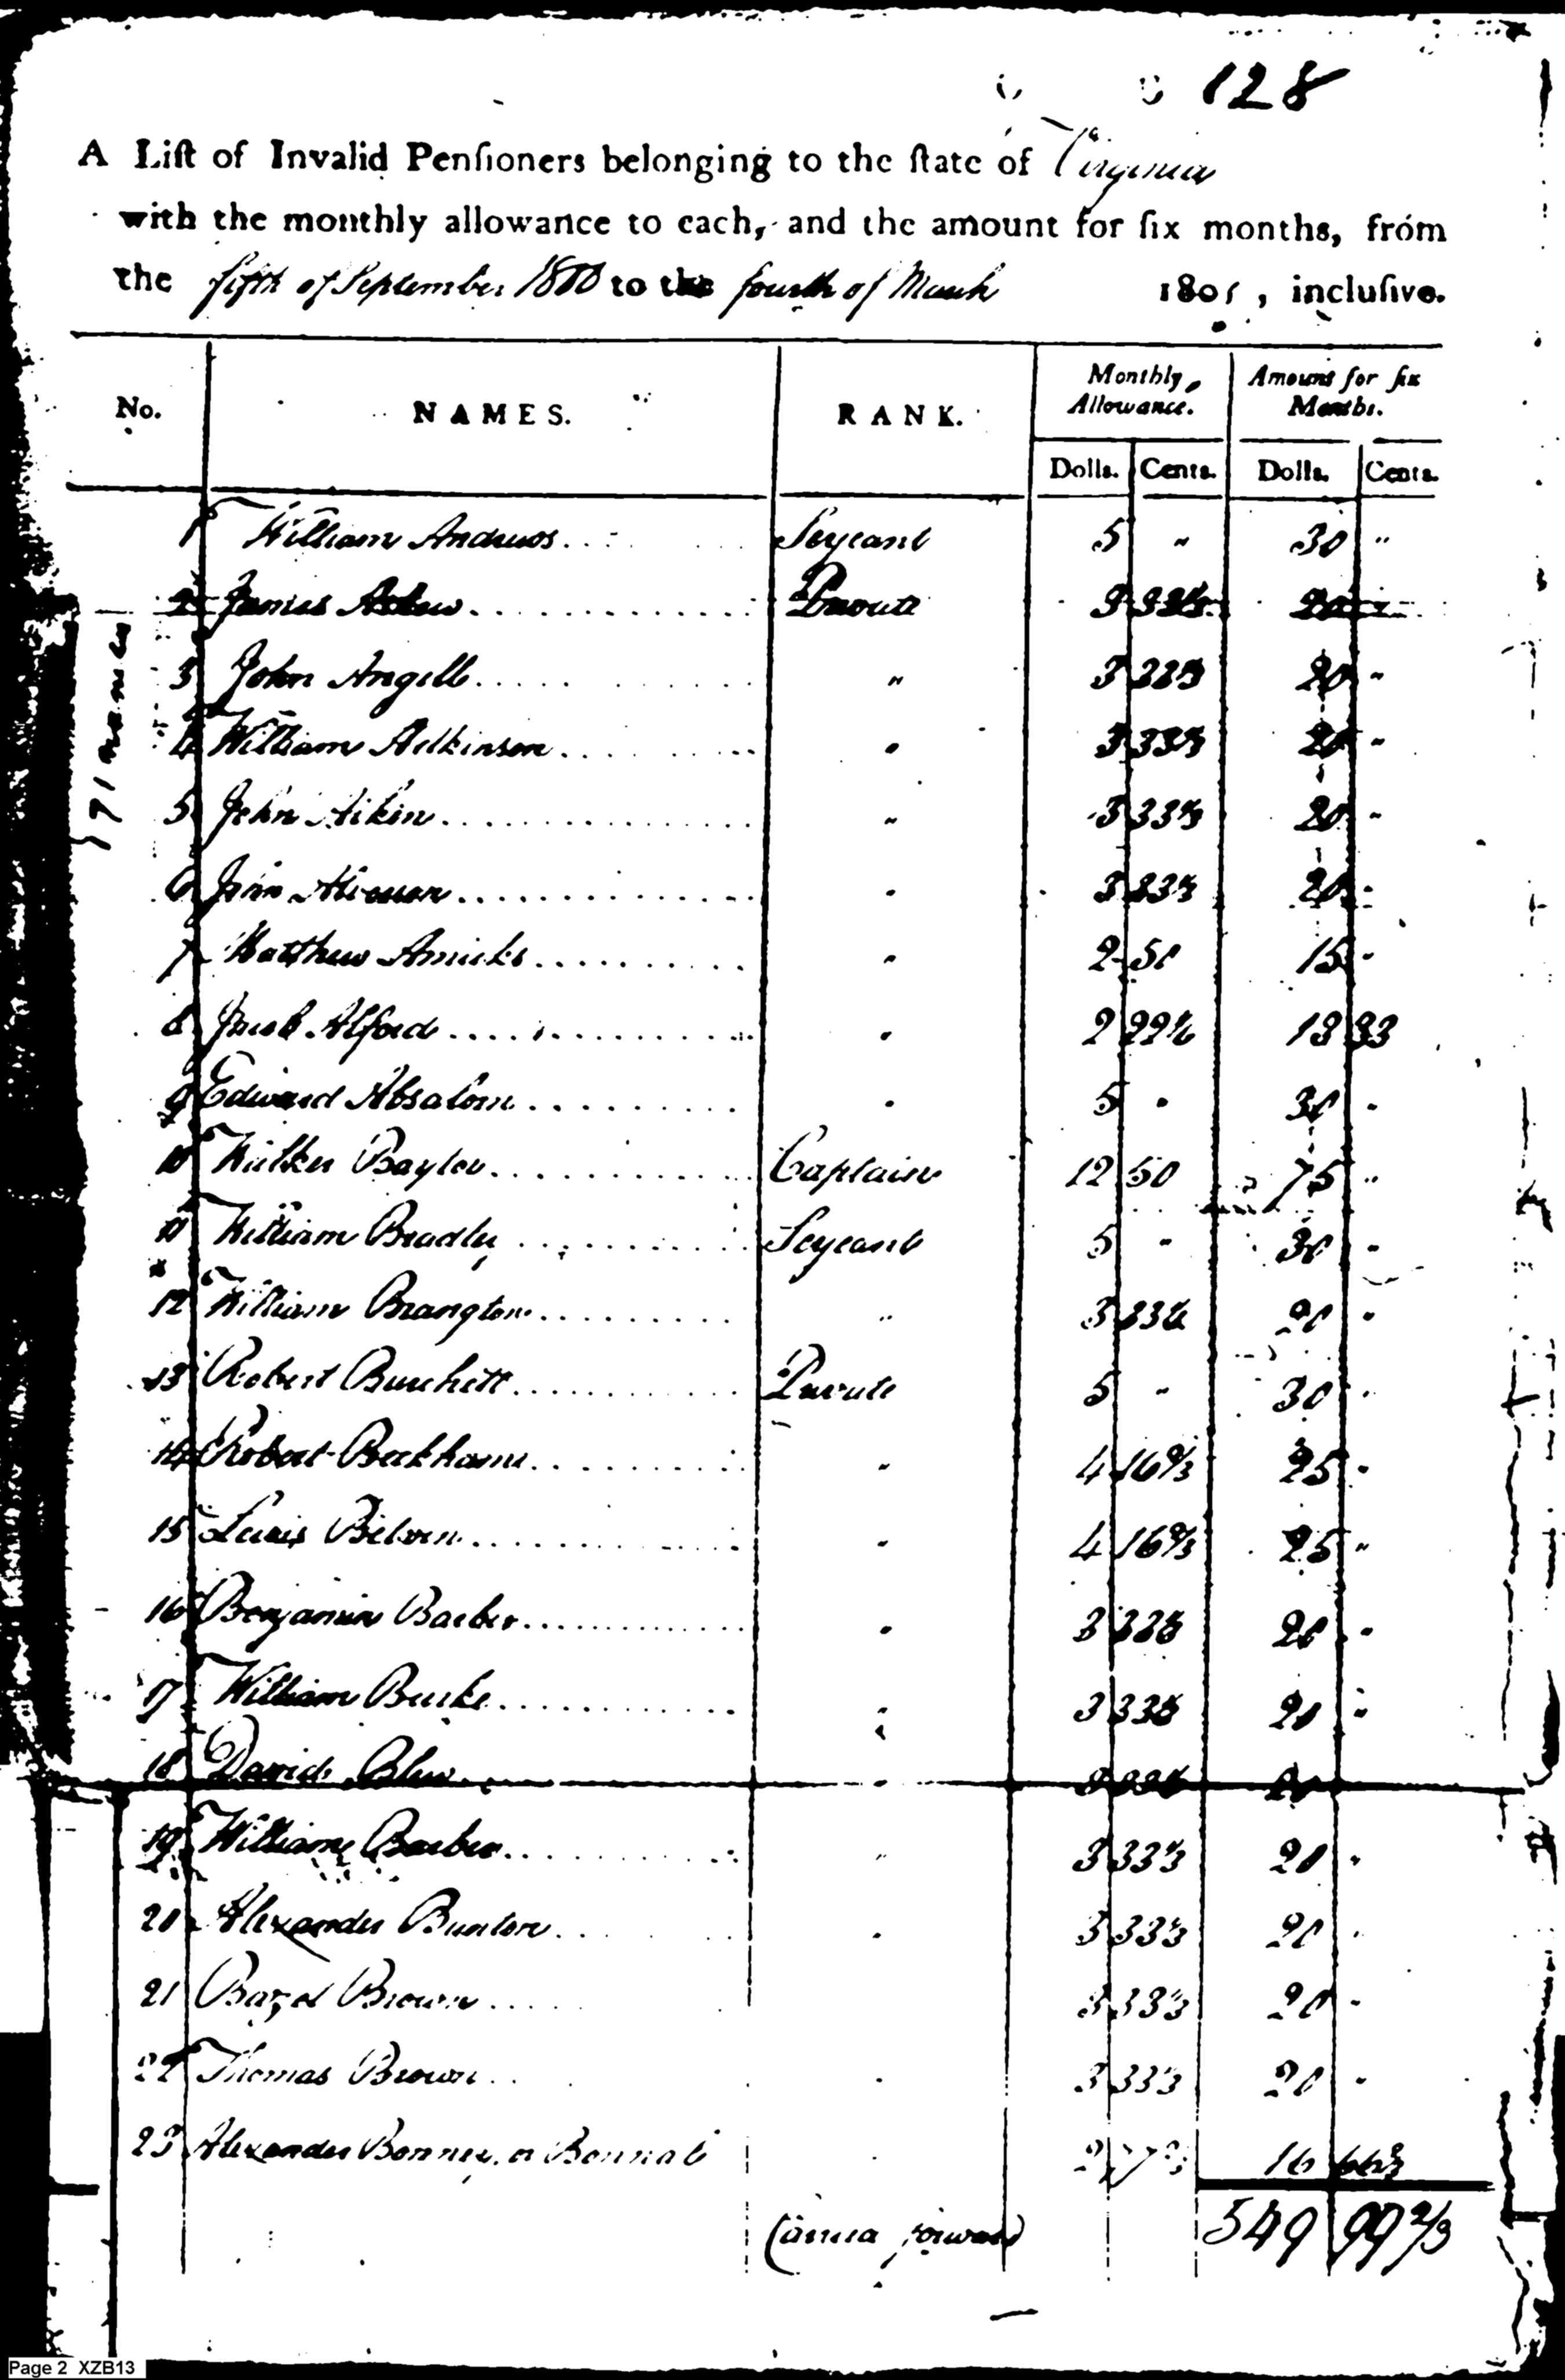 128
A Liſt of Invalid Penſioners belonging to the ſtate of Virginia
with the monthly allowance to each, and the amount for ſix months, from
the fifth of September 1800 to the fourth of March 1801, incluſive.
No. NAMES. RANK. Monthly Allowance. Amount for ſix Months.
Dolls. Cents. Dolls. Cents.
1 William Andrews Serjeant 5 " 30 "
2 James Private 3 33⅓ 20 "
3 John Angell " 3 33⅓ 20 "
4 William Adkinson " 3 33⅓ 20 "
5 John Aikin " 3 33⅓ 20 "
6 " 3 33⅓ 20 "
7 Matthew Amicks " 2 50 15 "
8 Jacob Alford " 2 22 13 33
9 Edward Absalom " 5 " 30 "
10 Walker Baylor Captain 12 50 75 "
11 William Bradley Serjeant 5 " 30 "
12 William Brangton " 3 33⅓ 20 "
13 Robert Burchett Private 5 " 30 "
14 Robert Beckham " 4 16⅔ 25 "
15 Lewis " 4 16⅔ 25 "
16 Benjamin Barber " 3 33⅓ 20 "
17 William Burke " 3 33⅓ 20 "
18 David Blew " 3 33⅓ 20
19 William Barber " 3 33⅓ 20 "
20 Alexander Bunton " 3 33⅓ 20 "
21 Brown 3 33⅓ 20 "
22 Thomas Brown " 3 33⅓ 20 "
23 Alexander Bonney, or " 2 16 66⅔
forward 549 99⅔
171 names
Page 2 XZB13